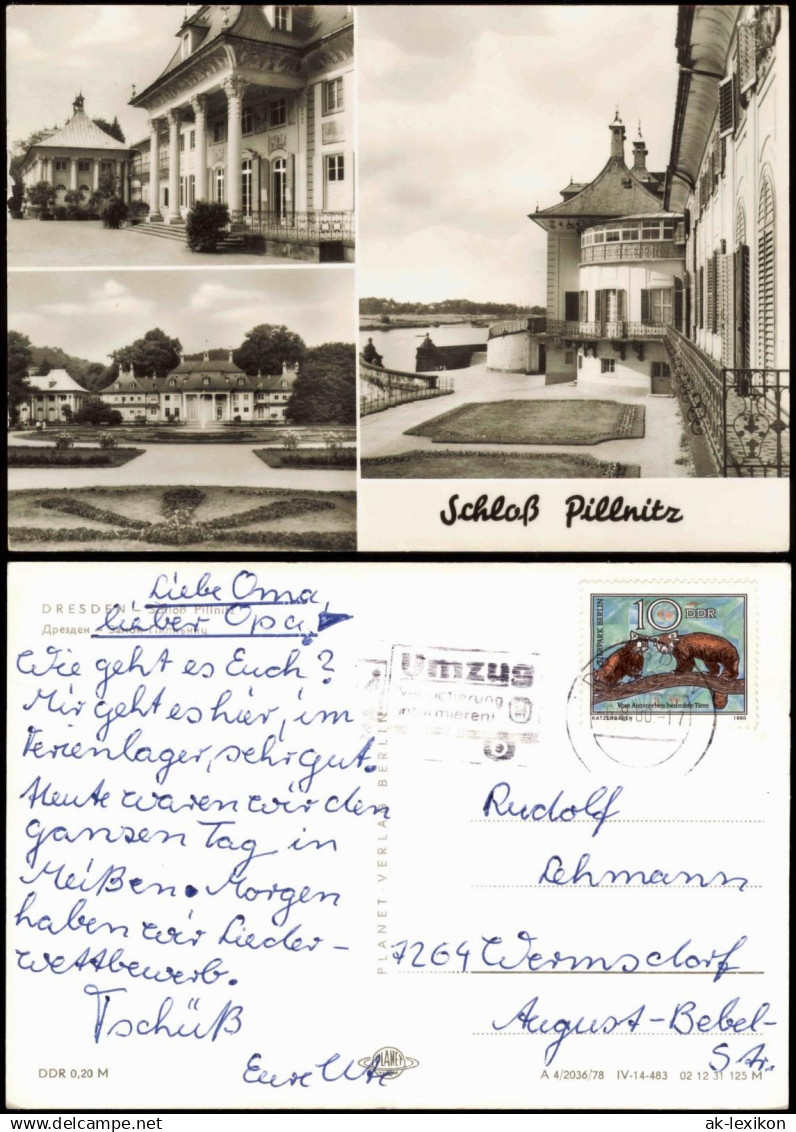 Schloß Pillnitz
DRESDEN – Schloß Pillnitz
Дрезден – Замок Пилльниц
Liebe Oma,
lieber Opa!
Wie geht es Euch?
Mir geht es hier, im
Ferienlager, sehr gut.
Heute waren wir den
ganzen Tag in
Meißen. Morgen
haben wir Lieder-
wettbewerb.
Tschüß
Eure Ute
DDR 0,20 M
PLANET-VERLAG BERLIN
PLANET
Umzug
Versicherung
informieren!
TIERPARK BERLIN
10 DDR
Vom Aussterben bedrohte Tiere
KATZENBÄREN 1980
Rudolf
Lehmann
7264 Wermsdorf
August-Bebel-
Str.
A 4/2036/78 IV-14-483 02 12 31 125 M
ak-lexikon